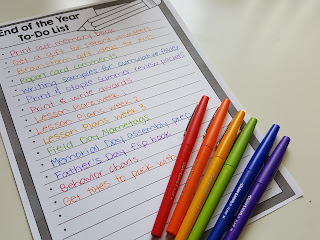 End of the Year
To-Do List
Print out memory book
Get a gift for parent volunteers
Brainstorm gift ideas for kids
Report card comments
Writing samples for cumulative folder
Print & staple summer review packets
Print & write awards
Lesson Plans week 1
Lesson Plans week 2
Lesson Plans week 3
Field Day Nametags
Memorial Day assembly prep
Father's Day flip book
Behavior Charts
Get totes to pack with